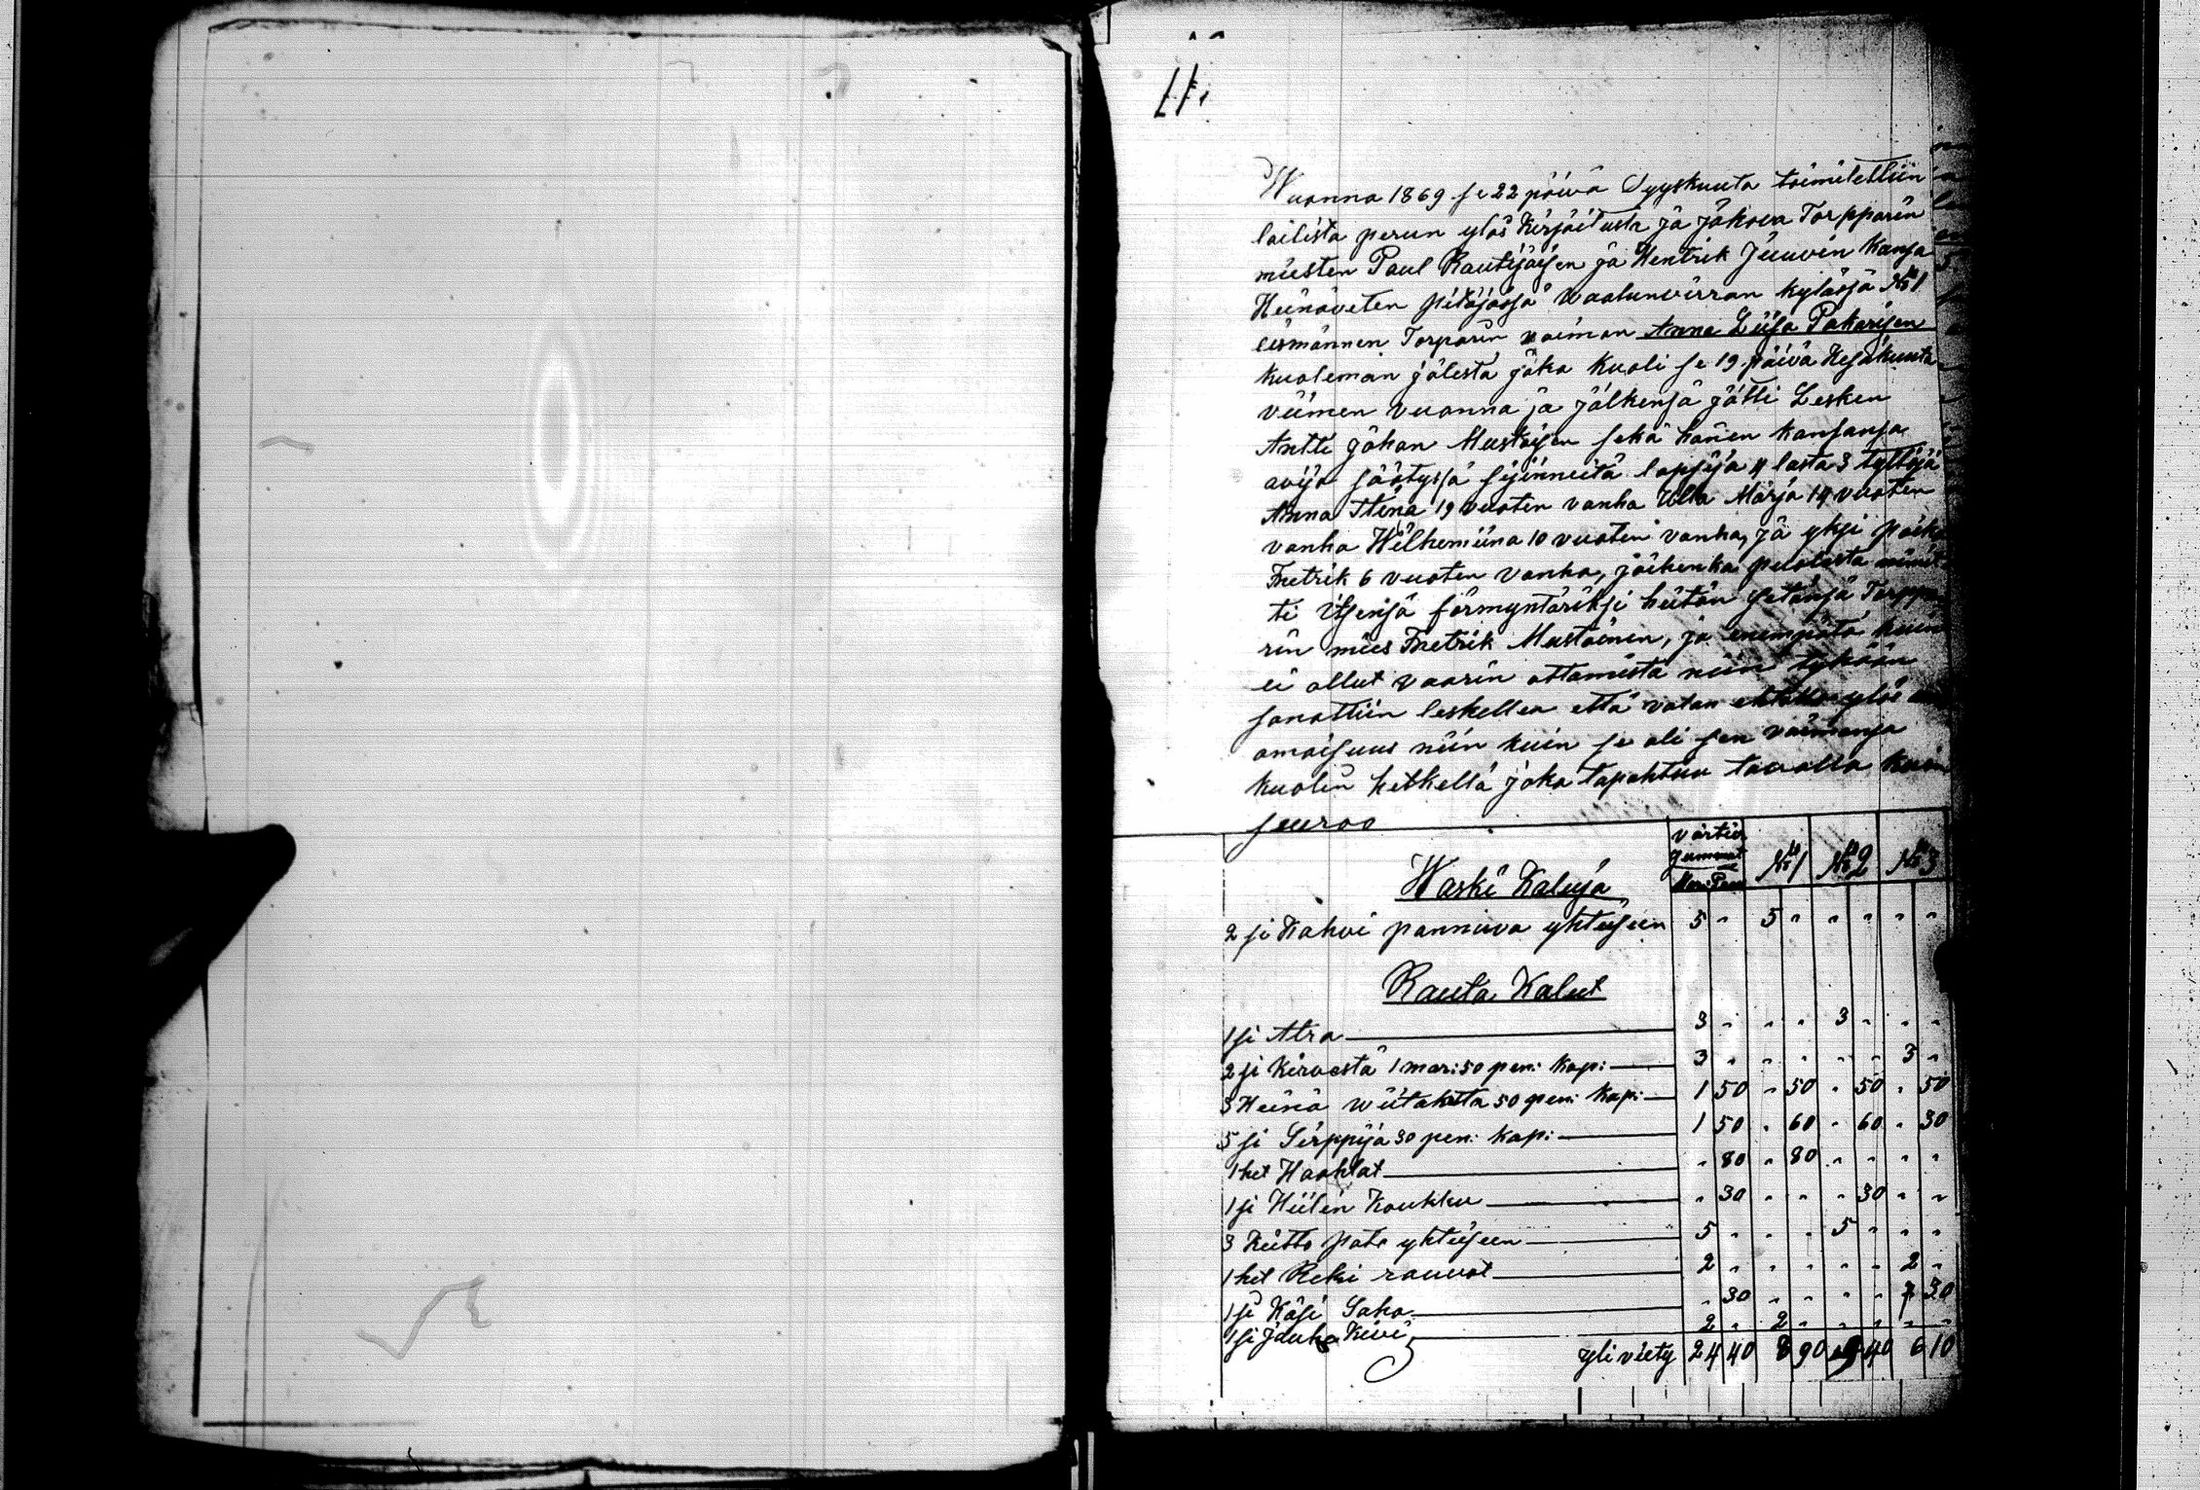 11.
Wuonna 1869 se 22 päivä Syyskuuta toimitettiin
lailista perun ylös kirjoitusta ja jakova Torpparin
miesten Paul Rautijaisen ja Hentrik Juuvin kansa
Heinäveten pitäjässä Waalunvirran kylässä No 1
Torparin vaimon Anna Liisa Pakarisen
kuoleman jälestä joka kuoli se 19 päivä Kesäkuuta
viimen vuonna ja jälkensä jätti Lesken
Antti Johan Mustosen sekä hänen kansansa
avijo säätyssä sijinneitä lapsija 4 lasta 3 tyttöjä
Anna Stina 19 vuoten vanha Ulla Marja 14 vuoten
vanha Wilhemiina 10 vuoten vanha, ja yksi poika
Fretrik 6 vuoten vanha, joihenka puolesta nimit
ti itsensä förmyntäriksi heitän setänsä Torppa
rin mies Fretrik Mustoinen, ja enempätä kuin
ei ollut vaarin ottamista niin tykään
sanottiin leskellen että vatan ylös
omaisuus niin kuin se oli sen vaimonsa
kuolin hetkellä joka tapahtuu tavalla kuin
seuraa
Wartio Summat Mar: Pen No 1 No 2 No 3
Waski Kaluja
2 si Kahvi pannuva yhteiseen 5 " 5 " " " " "
Rauta Kalut
1 si Atra 3 " " " 3 " " "
2 si Kirvestä 1 mar: 50 pen: kap: 3 " " " " " 3 "
3 Heinä wiitaketta 50 pen: kap: 1 50 " 50 " 50 " 50
5 si Sirppijä 30 pen: kap: 1 50 " 60 " 60 " 30
1 ket Haahlat " 80 " 80 " " " "
1 si Hiilin Koukku " 30 " " " 30 " "
3 Keitto pata yhteiseen 5 " " " 5 " " "
1 ket Reki rauvat 2 " " " " " 2 "
1 si Käsi Saha " 30 " " " " " 30
1 si Jauho Kivi 2 " 2 " " " " "
yli viety 24 40 8 90 9 40 6 10